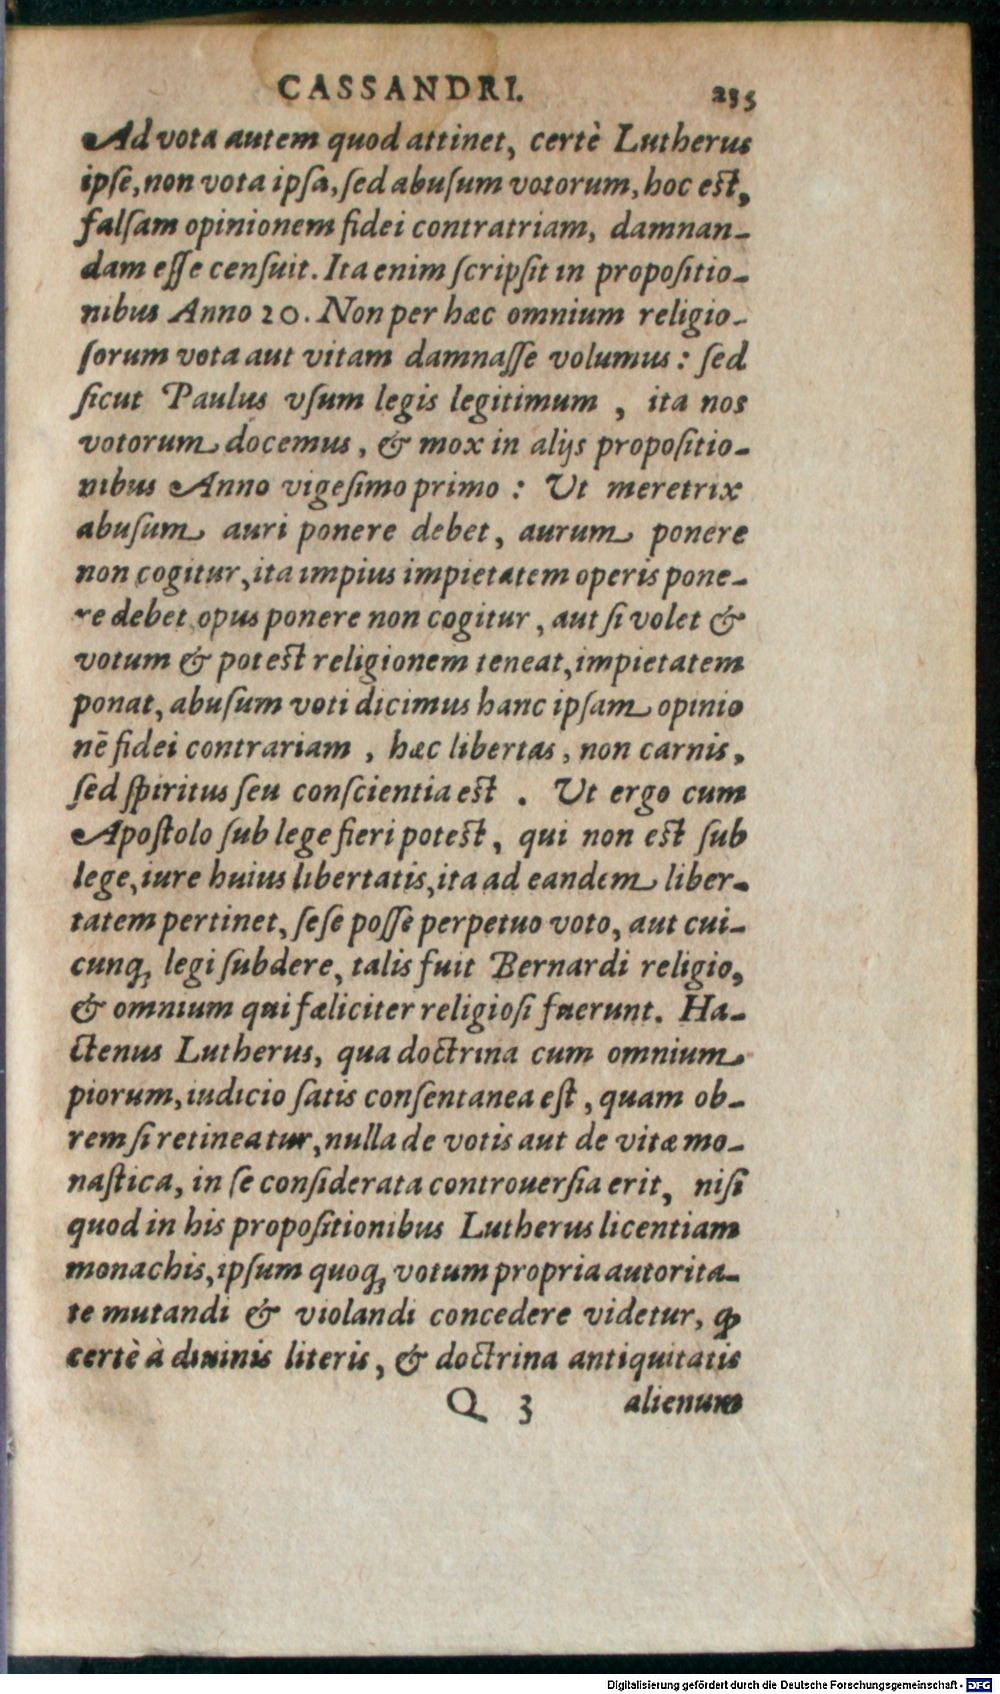 CASSANDRI. 235
Ad vota autem quod attinet, certè Lutherus
ipſe, non vota ipſa, ſed abuſum votorum, hoc eſt,
falſam opinionem fidei contratriam, damnan-
dam eſſe cenſuit. Ita enim ſcripſit in propoſitio-
nibus Anno 20. Non per hæc omnium religio-
ſorum vota aut vitam damnaſſe volumus: ſed
ſicut Paulus vſum legis legitimum, ita nos
votorum docemus, & mox in alijs propoſitio-
nibus Anno vigeſimo primo: Ut meretrix
abuſum auri ponere debet, aurum ponere
non cogitur, ita impius impietatem operis pone-
re debet opus ponere non cogitur, aut ſi volet &
votum & poteſt religionem teneat, impietatem
ponat, abuſum voti dicimus hanc ipſam opinio
nē fidei contrariam, hæc libertas, non carnis,
ſed ſpiritus ſeu conſcientia eſt. Ut ergo cum
Apoſtolo ſub lege fieri poteſt, qui non eſt ſub
lege, iure huius libertatis, ita ad eandem liber-
tatem pertinet, ſeſe poſſe perpetuo voto, aut cui-
cunq; legi ſubdere, talis fuit Bernardi religio,
& omnium qui fæliciter religioſi fuerunt. Ha-
ctenus Lutherus, qua doctrina cum omnium
piorum, iudicio ſatis conſentanea eſt, quam ob-
rem ſi retineatur, nulla de votis aut de vitæ mo-
naſtica, in ſe conſiderata controuerſia erit, niſi
quod in his propoſitionibus Lutherus licentiam
monachis, ipſum quoq; votum propria autorita-
te mutandi & violandi concedere videtur, ꝙ
certè à diuinis literis, & doctrina antiquitatis
Q 3 alienum
Digitalisierung gefördert durch die Deutsche Forschungsgemeinschaft - DFG